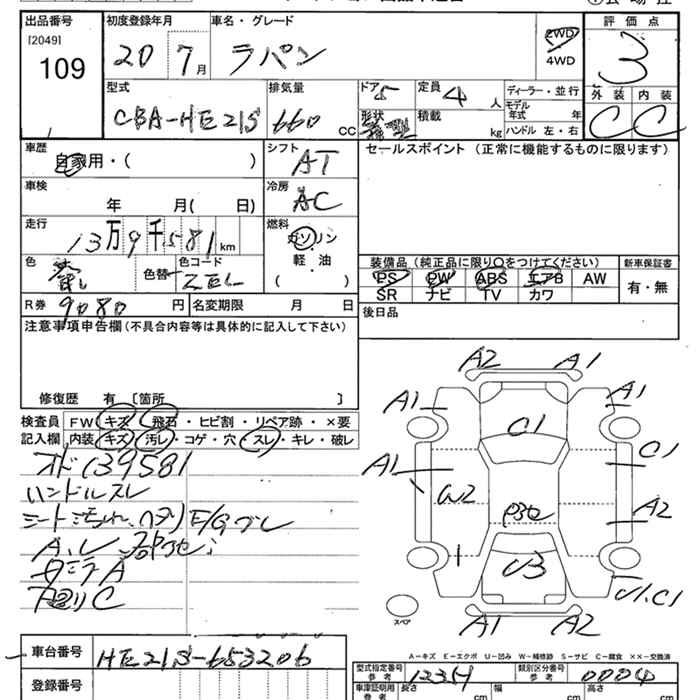 出品番号 初度登録年月 車名・グレード 評価点
[2049]
109 20 7月 ラパン 2WD 3
4WD
型式 排気量 ドア 定員 ディーラー・並行 外装 内装
CBA-HE21S 660 CC 5 4人 モデル年式 年 C C
形状 積載 kg ハンドル 左・右
車歴 シフト セールスポイント (正常に機能するものに限ります)
自家用・( ) AT
車検 冷房
年 月( 日) AC
走行 燃料
13万9千581km ガソリン
軽・油
( )
色 色替 色コード 装備品 (純正品に限り〇をつけてください) 新車保証書
ZEL PS PW ABS エアB AW 有・無
SR ナビ TV カワ
R券 9080円 名変期限 月 日 後日品
注意事項申告欄(不具合内容等は具体的に記入して下さい)
修復歴 有 〔箇所 〕
検査員 FW キズ・飛石・ヒビ割・リペア跡・×要
記入欄 内装 キズ・汚レ・コゲ・穴・スレ・キレ・破レ
オド139581
ハンドルスレ
シート汚れ、ヘタリ E/Gブレ
A2 A1
A1 A1
C1
A1 C1
W2 A2
U3
U1.C1
A1 A2
スペア
A-キズ E-エクボ U-凹み W-補修跡 S-サビ C-腐食 XX-交換済
車台番号 HE21S-653206
登録番号
型式指定番号 参考 類別区分番号 参考 0004
車庫証明用 参考 長さ cm 幅 cm 高さ cm